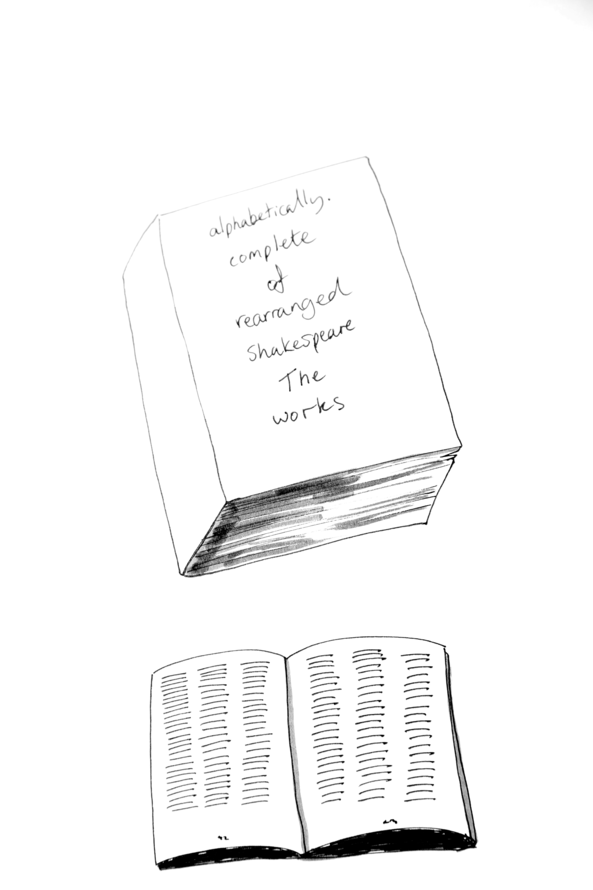 alphabetically.
complete
of
rearranged
Shakespeare
The
works